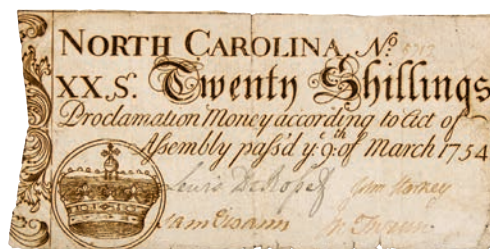 NORTH CAROLINA, No.
XX.S. Twenty Shillings
Proclamation Money according to Act of
Assembly pass'd ye. 9th. of March 1754
Lewis DeRosset John Starkey
Sam Swann